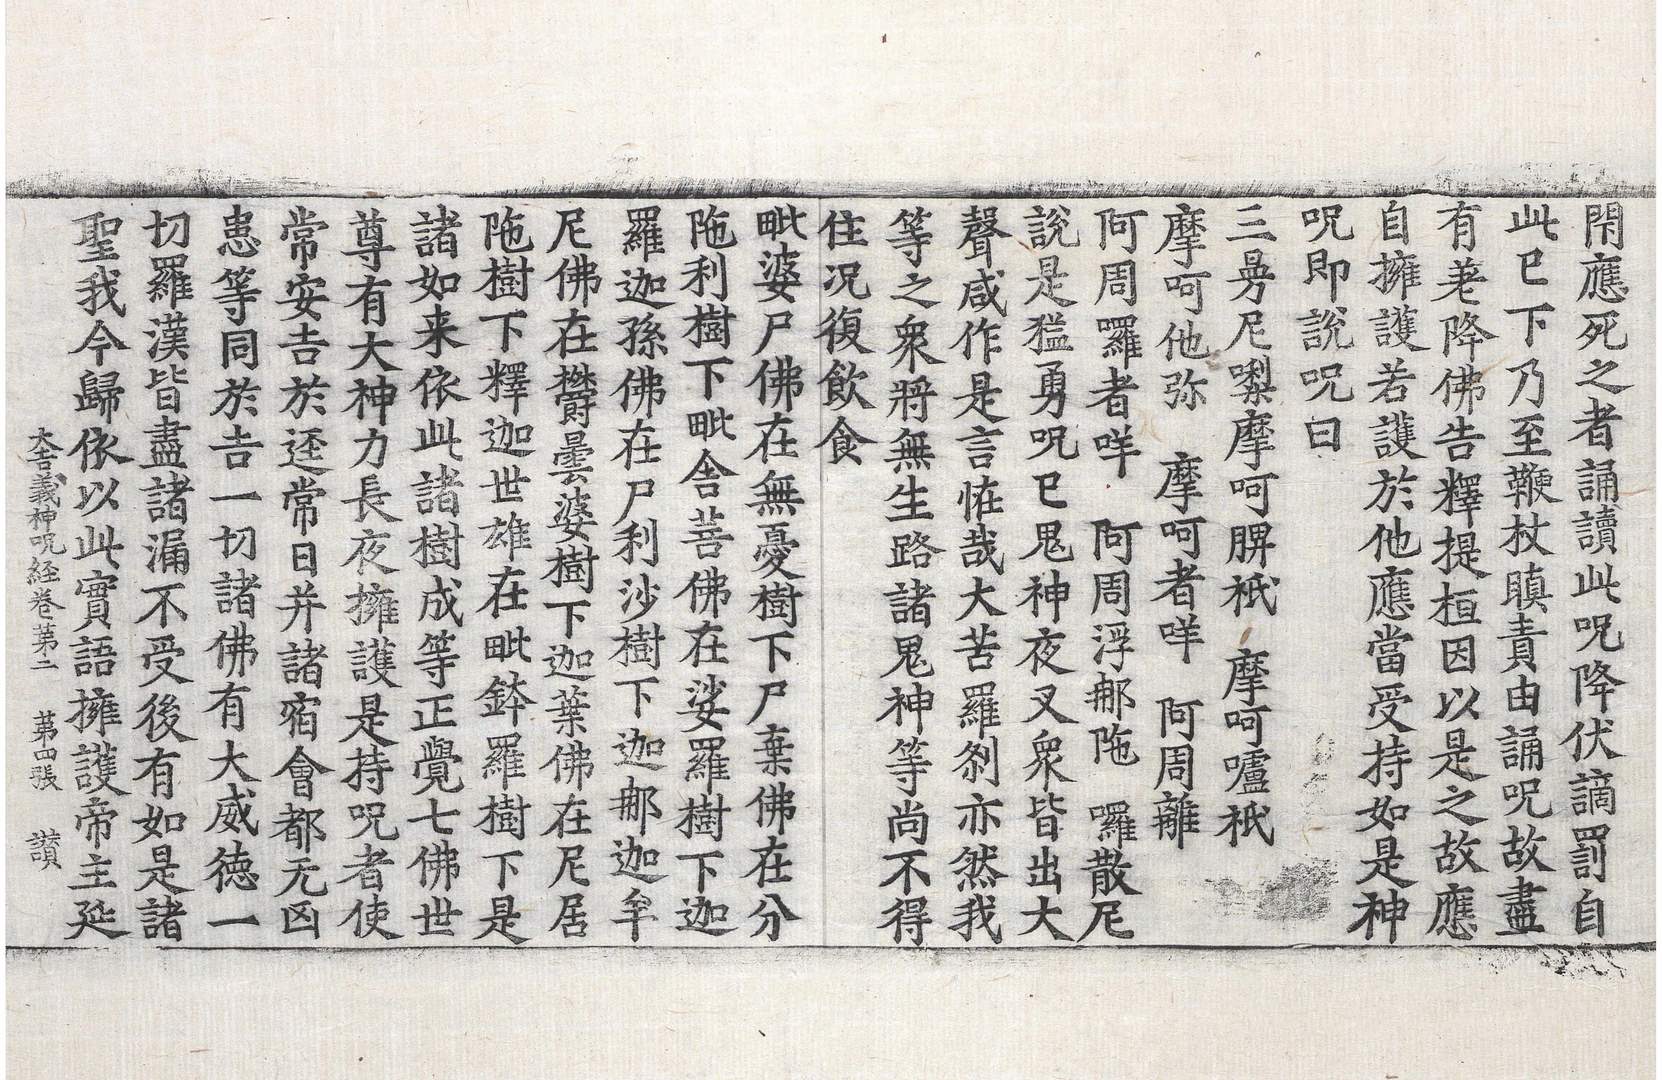 閇應死之者誦讀此呪降伏謫罰自
此已下乃至鞭杖瞋責由誦呪故盡
有荖降佛告釋提桓因以是之故應
自擁護若護於他應當受持如是神
呪即說呪曰
三曼尼㗚摩呵脾祇　摩呵嚧祇
摩呵他弥　摩呵者咩　阿周離
阿周囉者咩　阿周浮郍陁　囉散尼
說是猛勇呪已鬼神夜叉衆皆出大
聲咸作是言恠哉大苦羅剎亦然我
等之衆將無生路諸鬼神等尚不得
住况復飲食
毗婆尸佛在無憂樹下尸棄佛在分
陁利樹下毗舍菩佛在娑羅樹下迦
羅迦孫佛在尸利沙樹下迦郍迦牟
尼佛在欝曇婆樹下迦葉佛在尼居
陁樹下釋迦世雄在毗鉢羅樹下是
諸如来依此諸樹成等正覺七佛世
尊有大神力長夜擁護是持呪者使
常安吉於逕常日并諸宿會都无凶
患等同於吉一切諸佛有大威徳一
切羅漢皆盡諸漏不受後有如是諸
聖我今歸依以此實語擁護帝主延
大吉義神呪経卷第二　第四張　讃